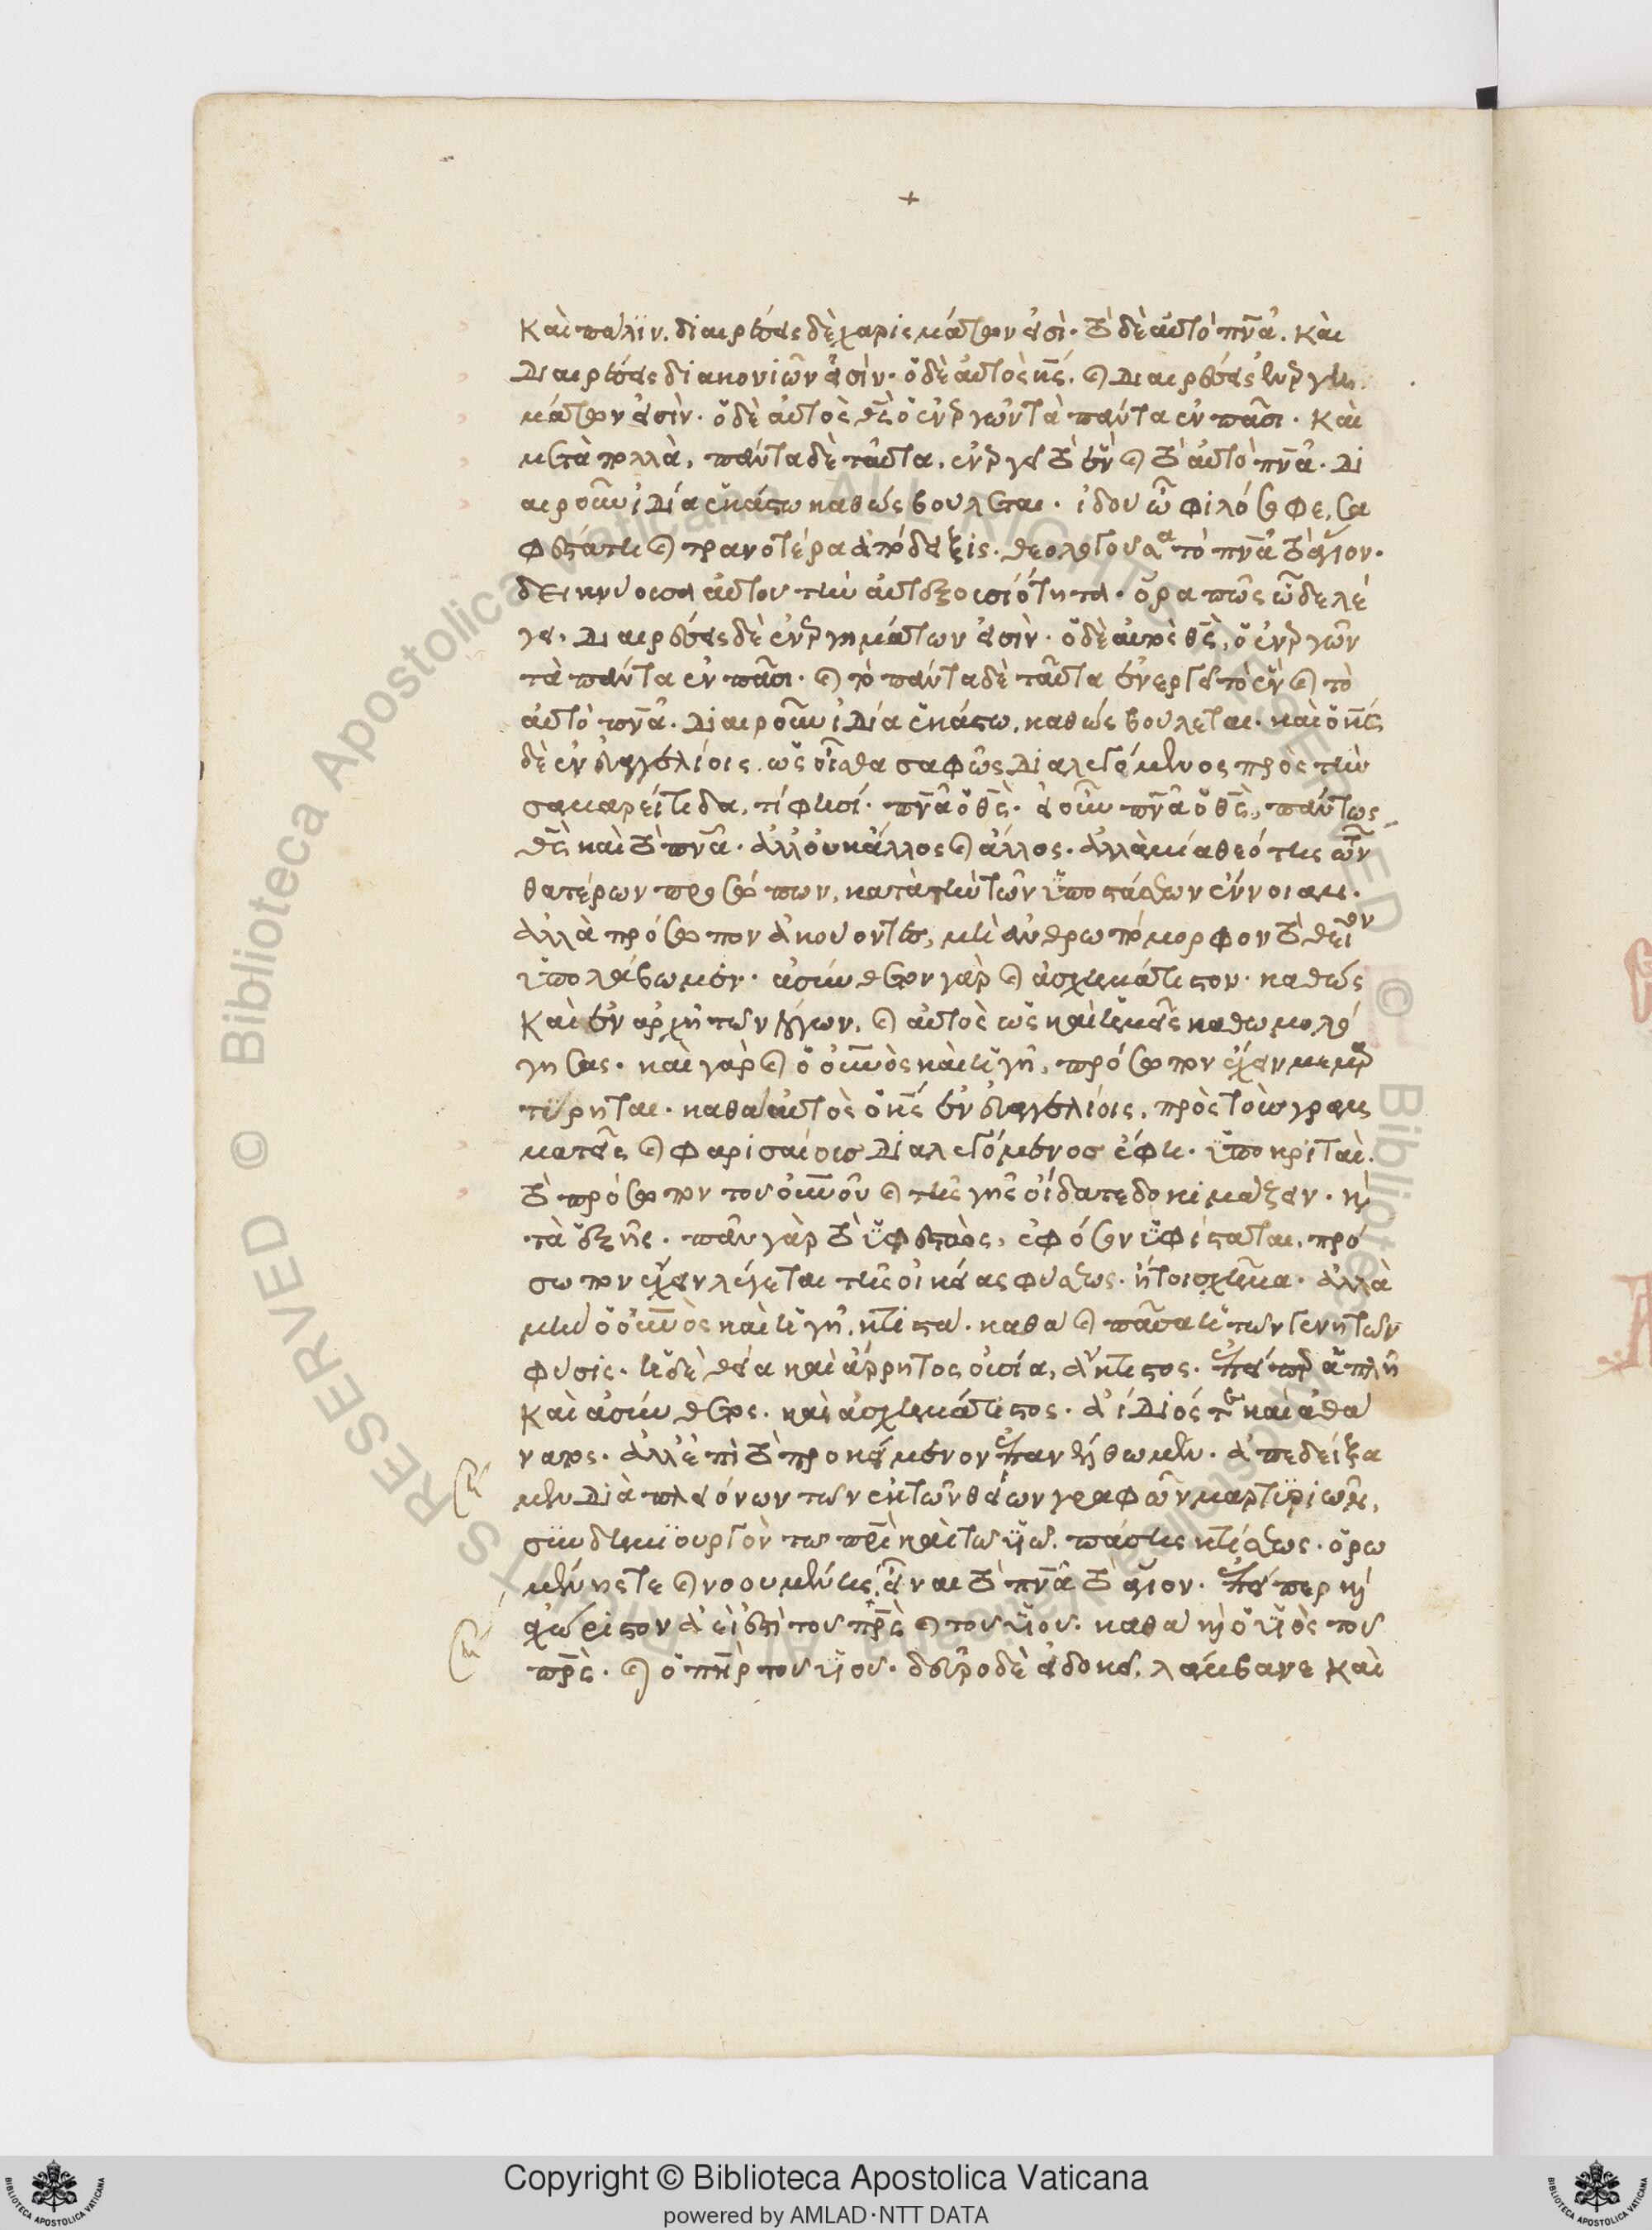 +
Καὶ πάλιν. διαιρέσεις δὲ χαρισμάτων εἰσί· τὸ δὲ αὐτὸ πν̅α̅. καὶ
διαιρέσεις διακονιῶν εἰσὶν· ὁ δὲ αὐτὸς κ̅ς̅. καὶ διαιρέσεις ἐνεργη
μάτων εἰσὶν· ὁ δὲ αὐτὸς θ̅ς̅ ὁ ἐνεργῶν τὰ πάντα ἐν πᾶσι. καὶ
μετὰ πολλὰ, πάντα δὲ ταῦτα, ἐνεργεῖ τὸ ἓν καὶ τὸ αὐτὸ πν̅α̅. δι
αιροῦν ἰδία ἑκάστω καθὼς βούλεται. ἰδοὺ ὦ φιλόσοφε, σα
φεστάτη καὶ τρανοτέρα ἀπόδειξις. θεολογοῦσα τὸ πν̅α̅ τὸ ἅγιον.
δεικνύουσα αὐτοῦ τὴν αὐτεξουσιότητα. ὅρα πῶς ὧδε λέ
γει. διαιρέσεις δὲ ἐνεργημάτων εἰσὶν. ὁ δὲ αὐτὸς θ̅ς̅, ὁ ἐνεργῶν
τὰ πάντα ἐν πᾶσι. καὶ τὸ πάντα δὲ ταῦτα ἐνεργεῖ τὸ ἓν καὶ τὸ
αὐτὸ πν̅α̅. διαιροῦν ἰδία ἑκάστω, καθὼς βούλεται. καὶ ὁ κ̅ς̅
δὲ ἐν εὐαγγελίοις. ὡς οἶσθα σαφῶς διαλεγόμενος πρὸς τὴν
σαμαρείτιδα, τί φησί. πν̅α̅ ὁ θ̅ς̅. εἰ οὖν πν̅α̅ ὁ θ̅ς̅, πάντως
θ̅ς̅ καὶ τὸ πν̅α̅. ἀλλ' οὐκ ἄλλος καὶ ἄλλος. ἀλλὰ μία θεότης ὧν
θατέρων προσώπων, κατὰ τὴν τῶν ὑποστάσεων ἔννοιαν.
ἀλλὰ πρόσωπον ἀκούοντες, μὴ ἀνθρωπόμορφον τὸ θεῖον
ὑπολάβωμεν. ἀσύνθετον γὰρ καὶ ἀσχημάτιστον. καθὼς
καὶ ἐν ἀρχῆ τῶν λόγων, καὶ αὐτὸς ὡς καὶ ἡμεῖς καθωμολό
γησας. καὶ γὰρ καὶ ὁ οὐ̅νὸς καὶ ἡ γῆ, πρόσωπον ἔχειν μεμαρ
τύρηται. καθὰ αὐτὸς ὁ κ̅ς̅ ἐν εὐαγγελίοις, πρὸς τοὺς γραμ
ματεῖς καὶ φαρισαίους διαλεγόμενος ἔφη. ὑποκριταὶ.
τὸ πρόσωπον τοῦ οὐ̅νοῦ καὶ τῆς γῆς οἴδατε δοκιμάζειν. καὶ
τὰ ἑξῆς. πᾶν γὰρ τὸ ὑφεστὼς, ἐφ' ὅσον ὑφίσταται, πρό
σωπον ἔχειν λέγεται τῆς οἰκείας φύσεως. ἤτοι σχῆμα. ἀλλὰ
μὴν ὁ οὐ̅νὸς καὶ ἡ γῆ, κτιστά. καθὰ καὶ πᾶσα ἡ τῶν γενητῶν
φύσις. ἡ δὲ θεία καὶ ἄρρητος οὐσία, ἄκτιστος. ἐπείπερ ἁπλῆ
καὶ ἀσύνθετος. καὶ ἀσχημάτιστος. ἀΐδιός τε καὶ ἀθά
νατος. ἀλλ' ἐπὶ τὸ προκείμενον ἐπανέλθωμεν. ἀπεδείξα
μεν διὰ πλειόνων τῶν ἐκ τῶν θείων γραφῶν μαρτυριῶν,
συνδημιουργὸν τῶ π̅ρ̅ι̅ καὶ τῶ υἱῶ. πάσης κτίσεως. ὁρω
μένης τε καὶ νοουμένης, εἶναι τὸ πν̅α̅ τὸ ἅγιον. ἐπείπερ καὶ
ἀχώριστον ἀεί ἐστι τοῦ π̅ρ̅ς̅ καὶ τοῦ υἱοῦ. καθὰ καὶ ὁ υἱὸς τοῦ
π̅ρ̅ς̅. καὶ ὁ π̅η̅ρ τοῦ υἱοῦ. δεῦρο δὲ εἰ δοκεῖ, λάμβανε καὶ
Copyright © Biblioteca Apostolica Vaticana
powered by AMLAD·NTT DATA